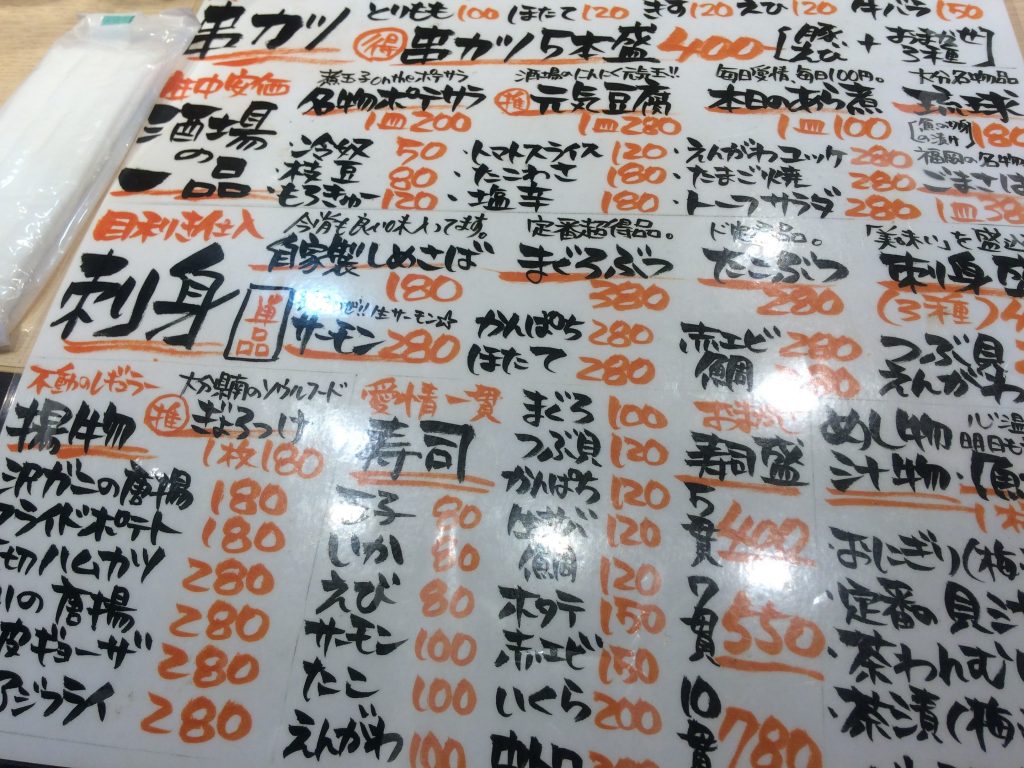 串カツ とりもも100 ほたて120 きす120 えび120 牛バラ150
得 串カツ5本盛 400 [豚、えび + おまかせ3種]
酒場の一品
名物ポテサラ 1皿200
推 元気豆腐 1皿280
毎日愛情、毎日100円。
本日のあら煮 1皿100
大分名物品
琉球 180
・冷奴 50
・枝豆 80
・もろきゅー 120
・トマトスライス 120
・たこわさ 180
・塩辛 180
・えんがわユッケ 280
・たまご焼 280
・トーフサラダ 280
福岡の名物
ごまさば
1皿38
目利き仕入
刺身
単品
今宵も良い味入ってます。
自家製しめさば 180
定番超得品。
まぐろぶつ 380
ド定番品。
たこぶつ 280
「美味い」を盛込
刺身盛
(3種)4
生サーモン☆
サーモン 280
かんぱち 280
ほたて 280
赤エビ 280
鯛 280
つぶ貝
えんがわ
不動のレギュラー
揚物
大分県南のソウルフード
推 ぎょろっけ
1枚180
沢ガニの唐揚 180
フライドポテト 180
切ハムカツ 280
の唐揚 280
皮ギョーザ 280
アジフライ 280
愛情一貫
寿司
玉子 80
いか 80
えび 80
サーモン 100
たこ 100
えんがわ 100
まぐろ 100
つぶ貝 120
かんぱち 120
120
鯛 120
ホタテ 150
赤エビ 150
いくら 200
中トロ
寿司盛
5貫 400
7貫 550
10貫 780
めし物
汁物
心温
明日も
・おにぎり(梅
・定番の貝汁
・茶わんむし
・茶漬(梅